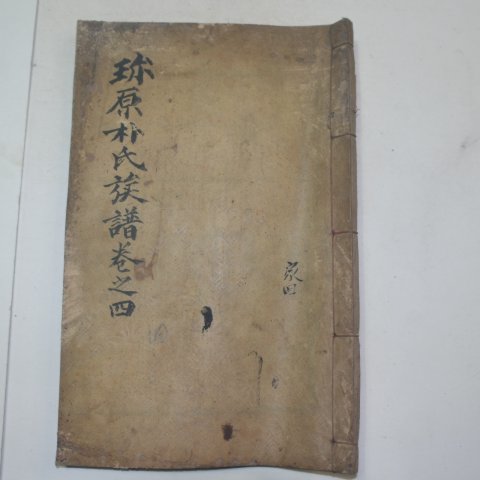 珎原朴氏族譜卷之四